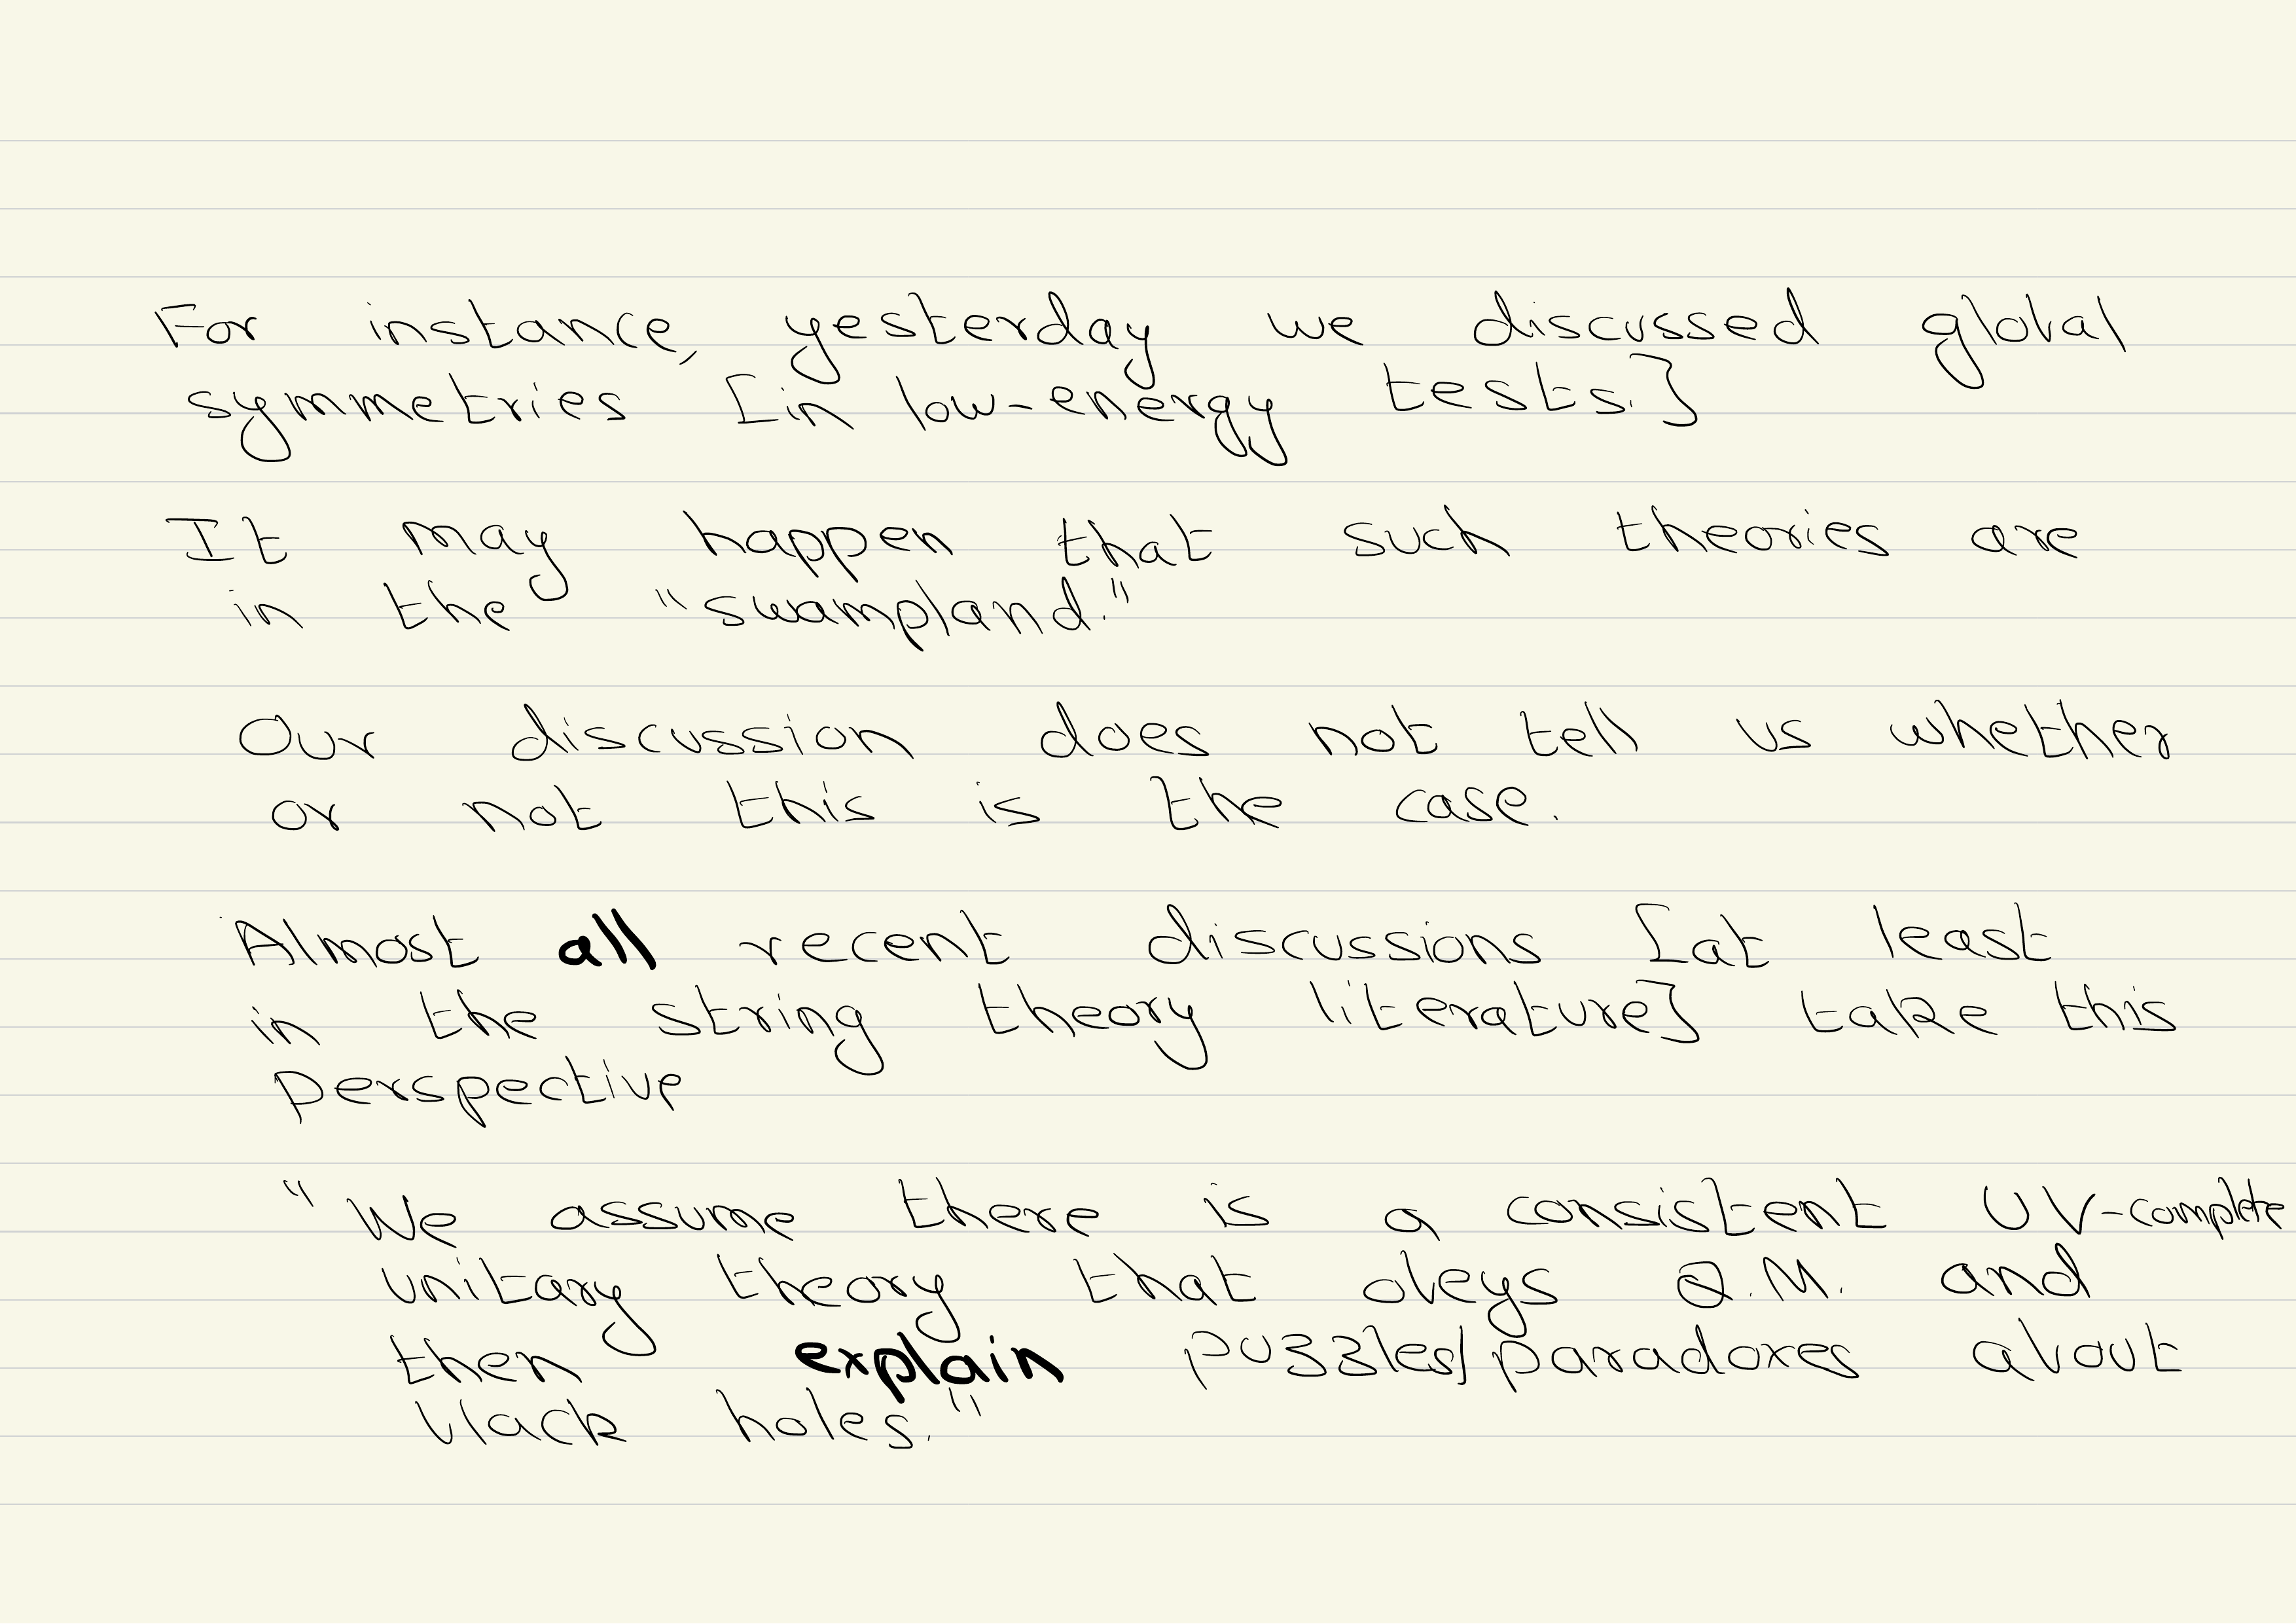 For instance, yesterday we discussed global
symmetries [in low-energy tests.]
It may happen that such theories are
in the "swampland."
Our discussion does not tell us whether
or not this is the case.
Almost all recent discussions [at least
in the string theory literature] take this
perspective
"We assume there is a consistent UV-complete
unitary theory that obeys Q.M. and
then explain puzzles/paradoxes about
black holes."